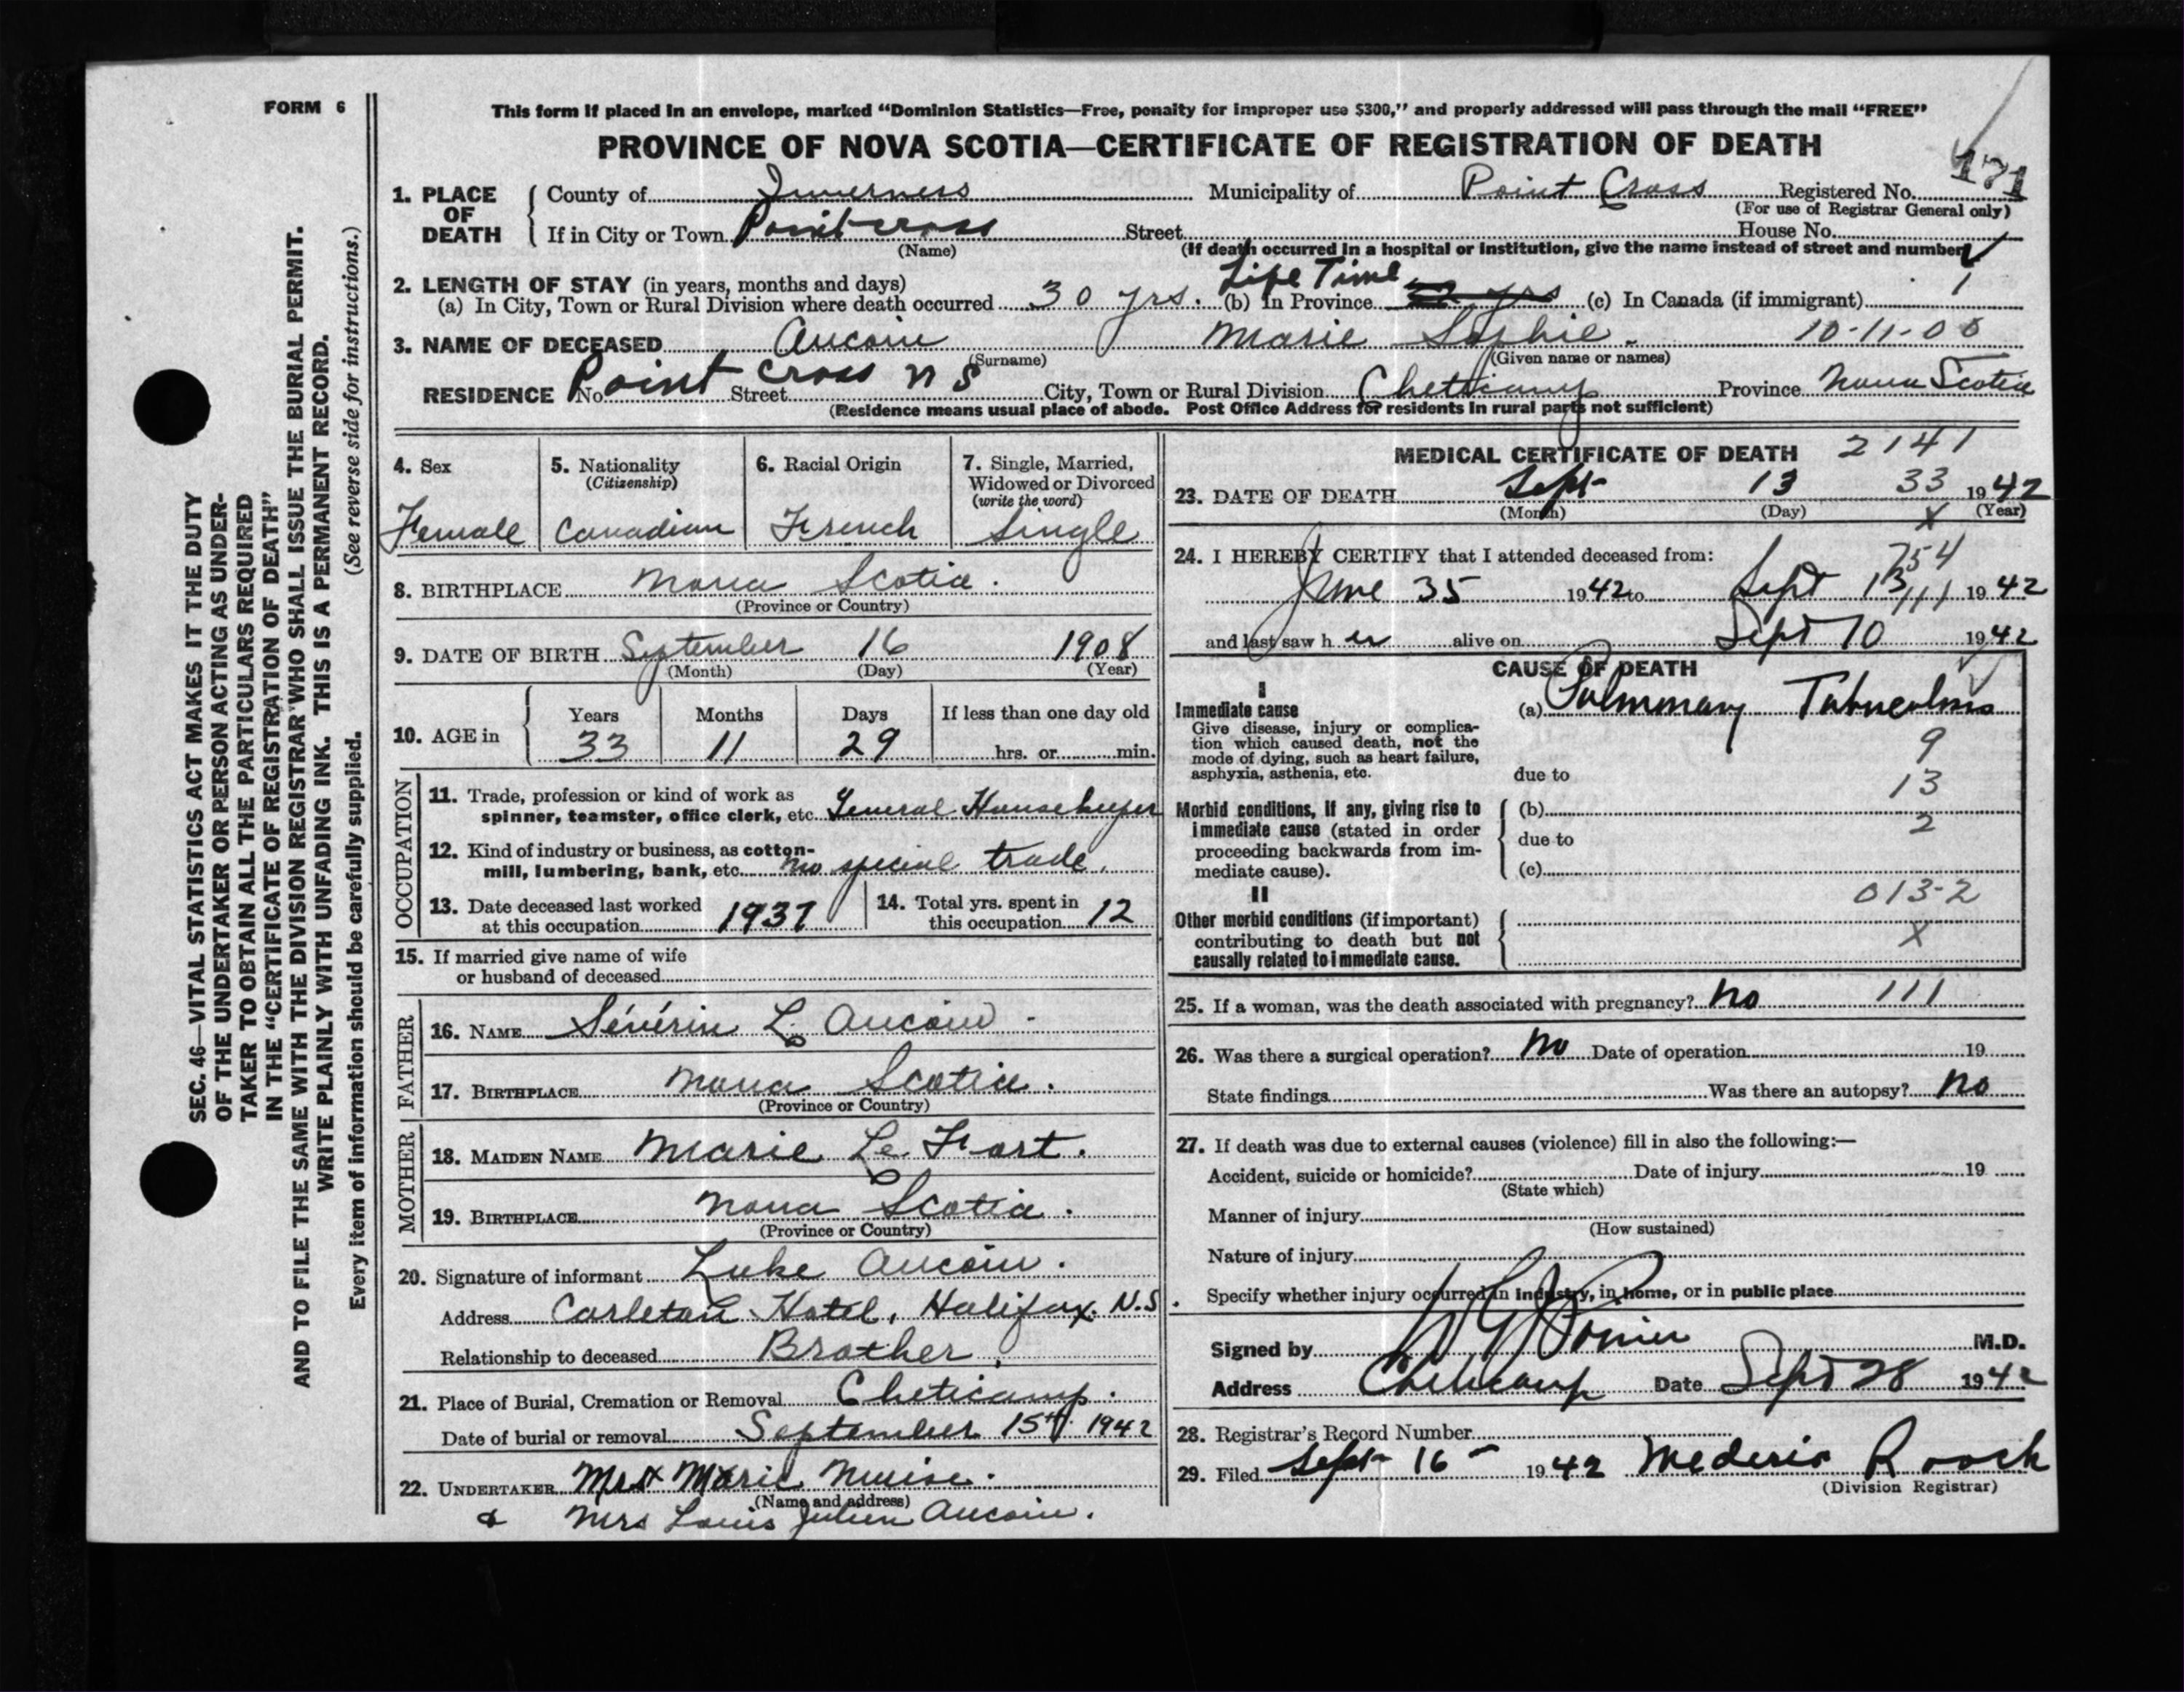 FORM 6
This form if placed in an envelope, marked “Dominion Statistics—Free, penalty for improper use $300,” and properly addressed will pass through the mail “FREE”
PROVINCE OF NOVA SCOTIA—CERTIFICATE OF REGISTRATION OF DEATH
171
1. PLACE OF DEATH County of Inverness Municipality of Point Cross Registered No.
(For use of Registrar General only)
If in City or Town Point cross Street House No.
(Name) (If death occurred in a hospital or institution, give the name instead of street and number)
2. LENGTH OF STAY (in years, months and days) Life Time
(a) In City, Town or Rural Division where death occurred 30 yrs. (b) In Province yrs (c) In Canada (if immigrant) 1
3. NAME OF DECEASED Aucoin Marie Sophie. 10-11-08
(Surname) (Given name or names)
RESIDENCE No. Point Cross N S Street City, Town or Rural Division Cheticamp Province Nova Scotia
(Residence means usual place of abode. Post Office Address for residents in rural parts not sufficient)
4. Sex 5. Nationality (Citizenship) 6. Racial Origin 7. Single, Married, Widowed or Divorced (write the word)
Female Canadian French Single
8. BIRTHPLACE Nova Scotia.
(Province or Country)
9. DATE OF BIRTH September 16 1908
(Month) (Day) (Year)
10. AGE in Years Months Days If less than one day old
33 11 29 hrs. or min.
OCCUPATION
11. Trade, profession or kind of work as
spinner, teamster, office clerk, etc. General Housekeeper
12. Kind of industry or business, as cotton-
mill, lumbering, bank, etc. no special trade.
13. Date deceased last worked at this occupation 1937 14. Total yrs. spent in this occupation 12
15. If married give name of wife
or husband of deceased
FATHER
16. NAME Sévérin L. Aucoin
17. BIRTHPLACE Nova Scotia.
(Province or Country)
MOTHER
18. MAIDEN NAME Marie Le Fort.
19. BIRTHPLACE Nova Scotia.
(Province or Country)
20. Signature of informant Luke Aucoin.
Address Carleton Hotel, Halifax. N.S.
Relationship to deceased Brother.
21. Place of Burial, Cremation or Removal Cheticamp.
Date of burial or removal September 15th 1942
22. UNDERTAKER Mrs Marie Muise.
(Name and address)
& Mrs Louis Julien Aucoin.
MEDICAL CERTIFICATE OF DEATH 2141
23. DATE OF DEATH Sept 13 33 1942
(Month) (Day) X (Year)
24. I HEREBY CERTIFY that I attended deceased from: 754
June 35 1942 to Sept 13 111 1942
and last saw her alive on Sept 10 1942
CAUSE OF DEATH
I
Immediate cause (a) Pulmonary Tuberculosis
Give disease, injury or complica-
tion which caused death, not the 9
mode of dying, such as heart failure,
asphyxia, asthenia, etc. due to 13
Morbid conditions, if any, giving rise to (b)
immediate cause (stated in order due to 2
proceeding backwards from im-
mediate cause). (c)
II 013-2
Other morbid conditions (if important)
contributing to death but not X
causally related to immediate cause.
25. If a woman, was the death associated with pregnancy? No 111
26. Was there a surgical operation? No Date of operation 19
State findings Was there an autopsy? No
27. If death was due to external causes (violence) fill in also the following:—
Accident, suicide or homicide? Date of injury 19
(State which)
Manner of injury
(How sustained)
Nature of injury
Specify whether injury occurred in industry, in home, or in public place
Signed by M.D.
Address Cheticamp Date Sept 28 1942
28. Registrar's Record Number
29. Filed Sept 16 1942 Mederic Roach
(Division Registrar)
SEC. 46—VITAL STATISTICS ACT MAKES IT THE DUTY
OF THE UNDERTAKER OR PERSON ACTING AS UNDER-
TAKER TO OBTAIN ALL THE PARTICULARS REQUIRED
IN THE “CERTIFICATE OF REGISTRATION OF DEATH”
AND TO FILE THE SAME WITH THE DIVISION REGISTRAR WHO SHALL ISSUE THE BURIAL PERMIT.
WRITE PLAINLY WITH UNFADING INK. THIS IS A PERMANENT RECORD.
Every item of information should be carefully supplied. (See reverse side for instructions.)